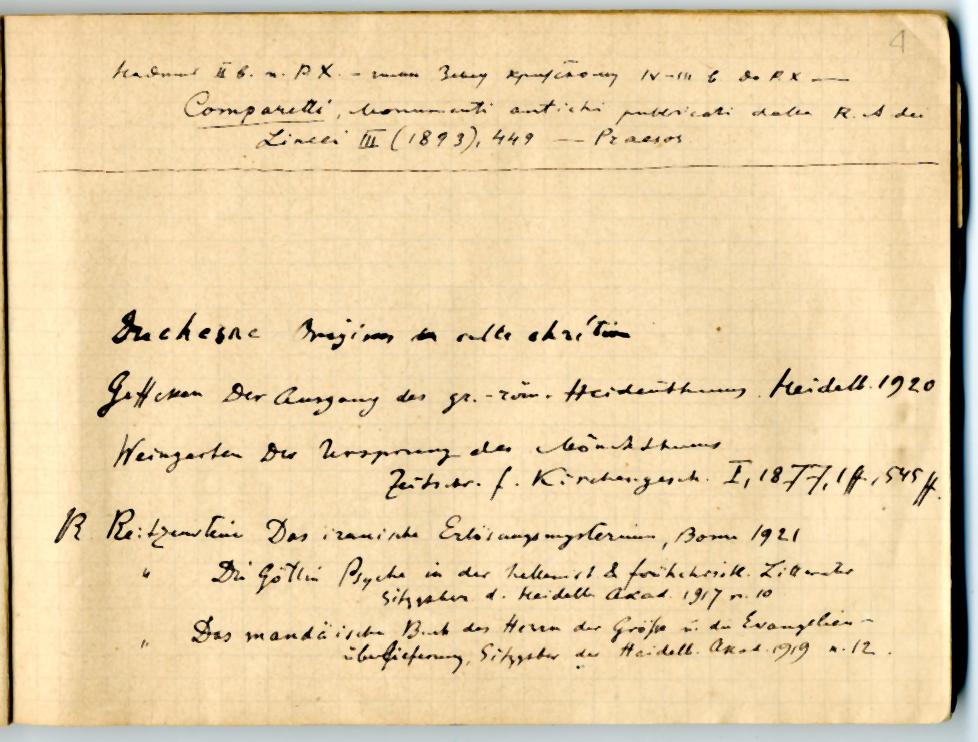 4
II в. п. Р.X. – IV–III в. до Р.X —
Comparetti, Monumenti antichi pubblicati dalla R. A dei
Lincei III (1893), 449 — Praesos
Duchesne Origines du culte chrétien
Geffcken Der Ausgang des gr.-röm. Heidenthums. Heidelb. 1920
Weingarten Der Ursprung des Mönchthums
Zeitschr. f. Kirchengesch. I, 1877, 1ff, 545 ff.
R Reitzenstein Das iranische Erlösungsmysterium, Bonn 1921
" Die Göttin Psyche in der hellenist & frühchristl. Litteratur
Sitzgsber d. Heidelb Akad. 1917 n. 10
" Das mandäische Buch des Herrn der Größe u. die Evangelien-
überlieferung, Sitzgsber der Heidelb. Akad. 1919 n. 12.